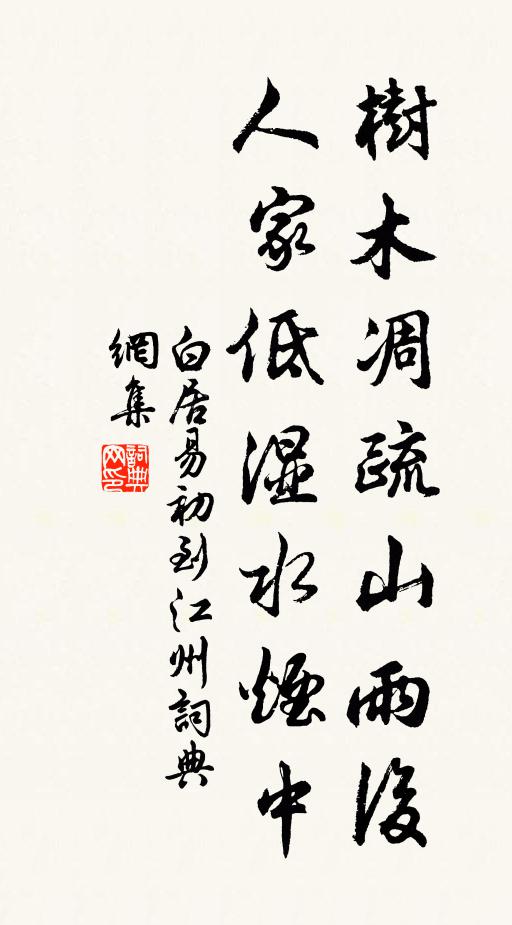 樹木凋疏山雨後
人家低湿水煙中
白居易初到江州詞典
網集
詞典网印